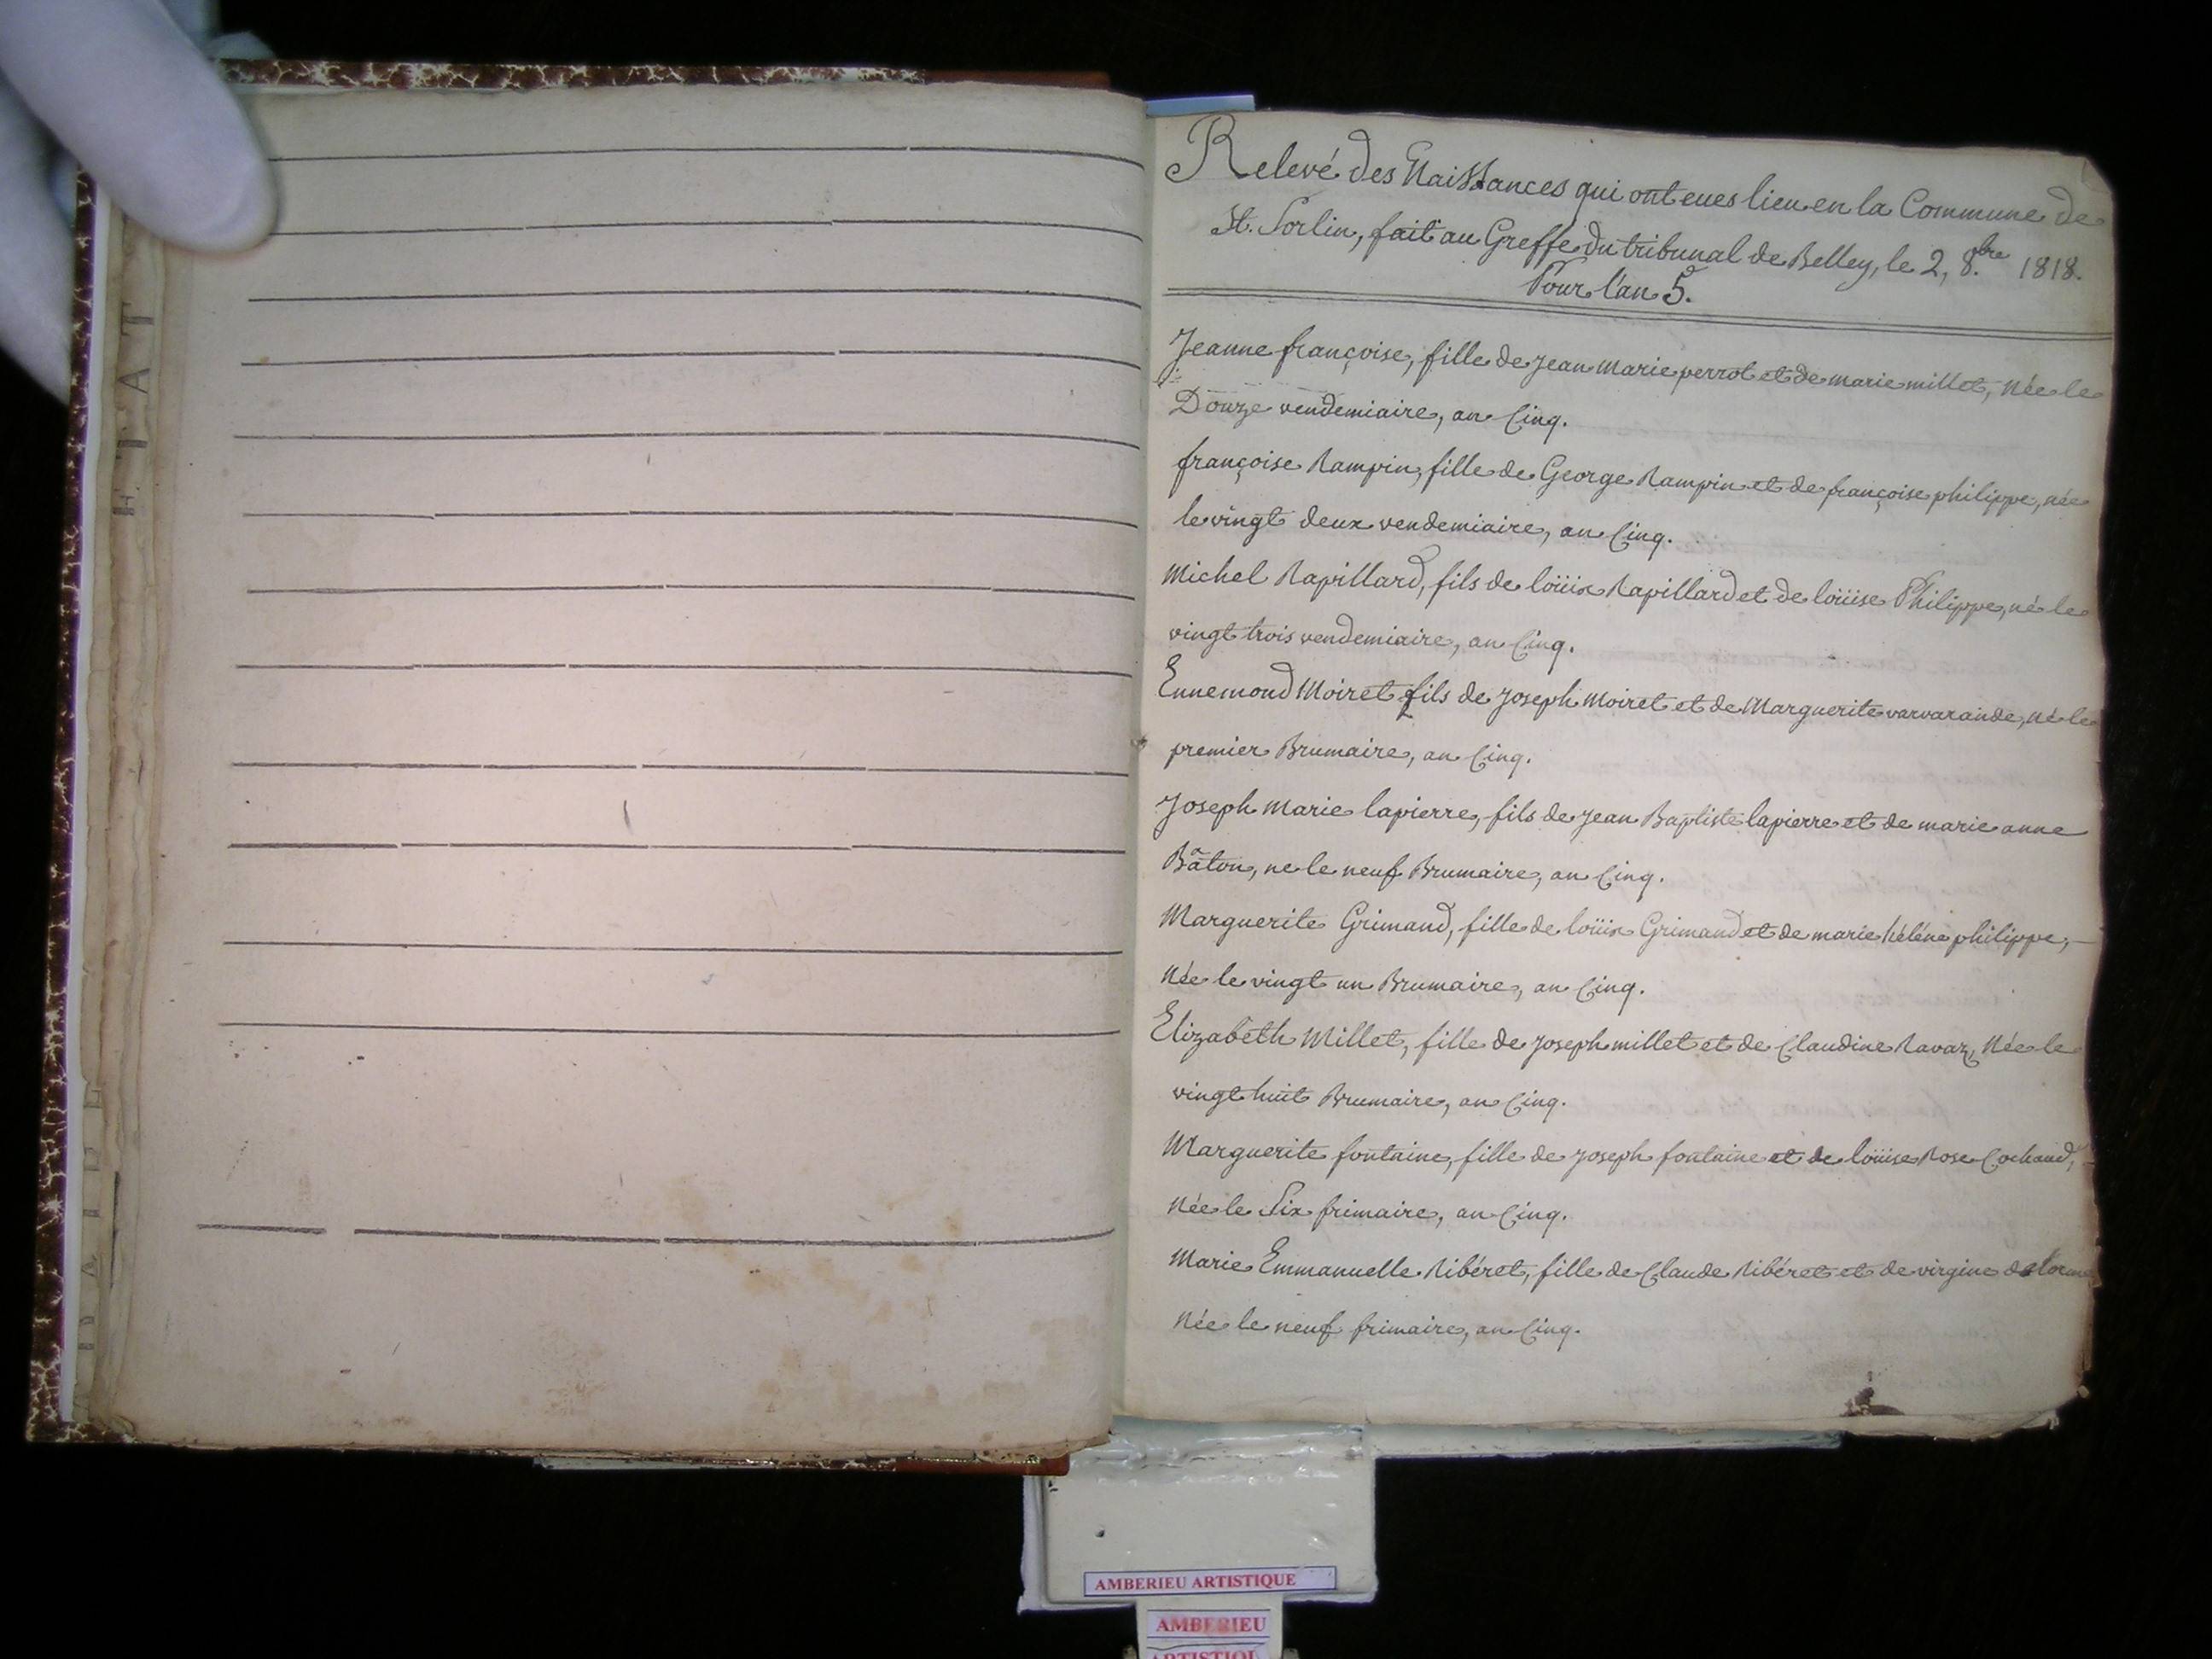 Relevé des Naissances qui ont eues lieu en la Commune de
St. Sorlin, fait au Greffe du tribunal de Belley, le 2, 8.bre 1818.
Pour l'an 5.
Jeanne françoise, fille de Jean Marie perrot et de marie millet, Née le
Douze vendemiaire, an Cinq.
françoise Rampin, fille de George Rampin et de françoise philippe, née
le vingt deux vendemiaire, an Cinq.
Michel Rapillard, fils de loüis Rapillard et de loüise Philippe, né le
vingt trois vendemiaire, an Cinq.
Ennemond Moiret fils de Joseph Moiret et de Marguerite varvarande, né le
premier Brumaire, an Cinq.
Joseph Marie lapierre, fils de Jean Baptiste lapierre et de marie anne
Bâton, ne le neuf Brumaire, an Cinq.
Marguerite Grimand, fille de loüis Grimand et de marie héléne philippe,
Née le vingt un Brumaire, an Cinq.
Elizabeth Millet, fille de Joseph millet et de Claudine Ravaz, Née le
vingt huit Brumaire, an Cinq.
Marguerite fontaine, fille de Joseph fontaine et de loüise Rose Cochand,
Née le Six frimaire, an Cinq.
Marie Emmanuelle Ribéret, fille de Claude Ribéret et de virgine
Née le neuf frimaire, an Cinq.
AMBERIEU ARTISTIQUE
AMBERIEU